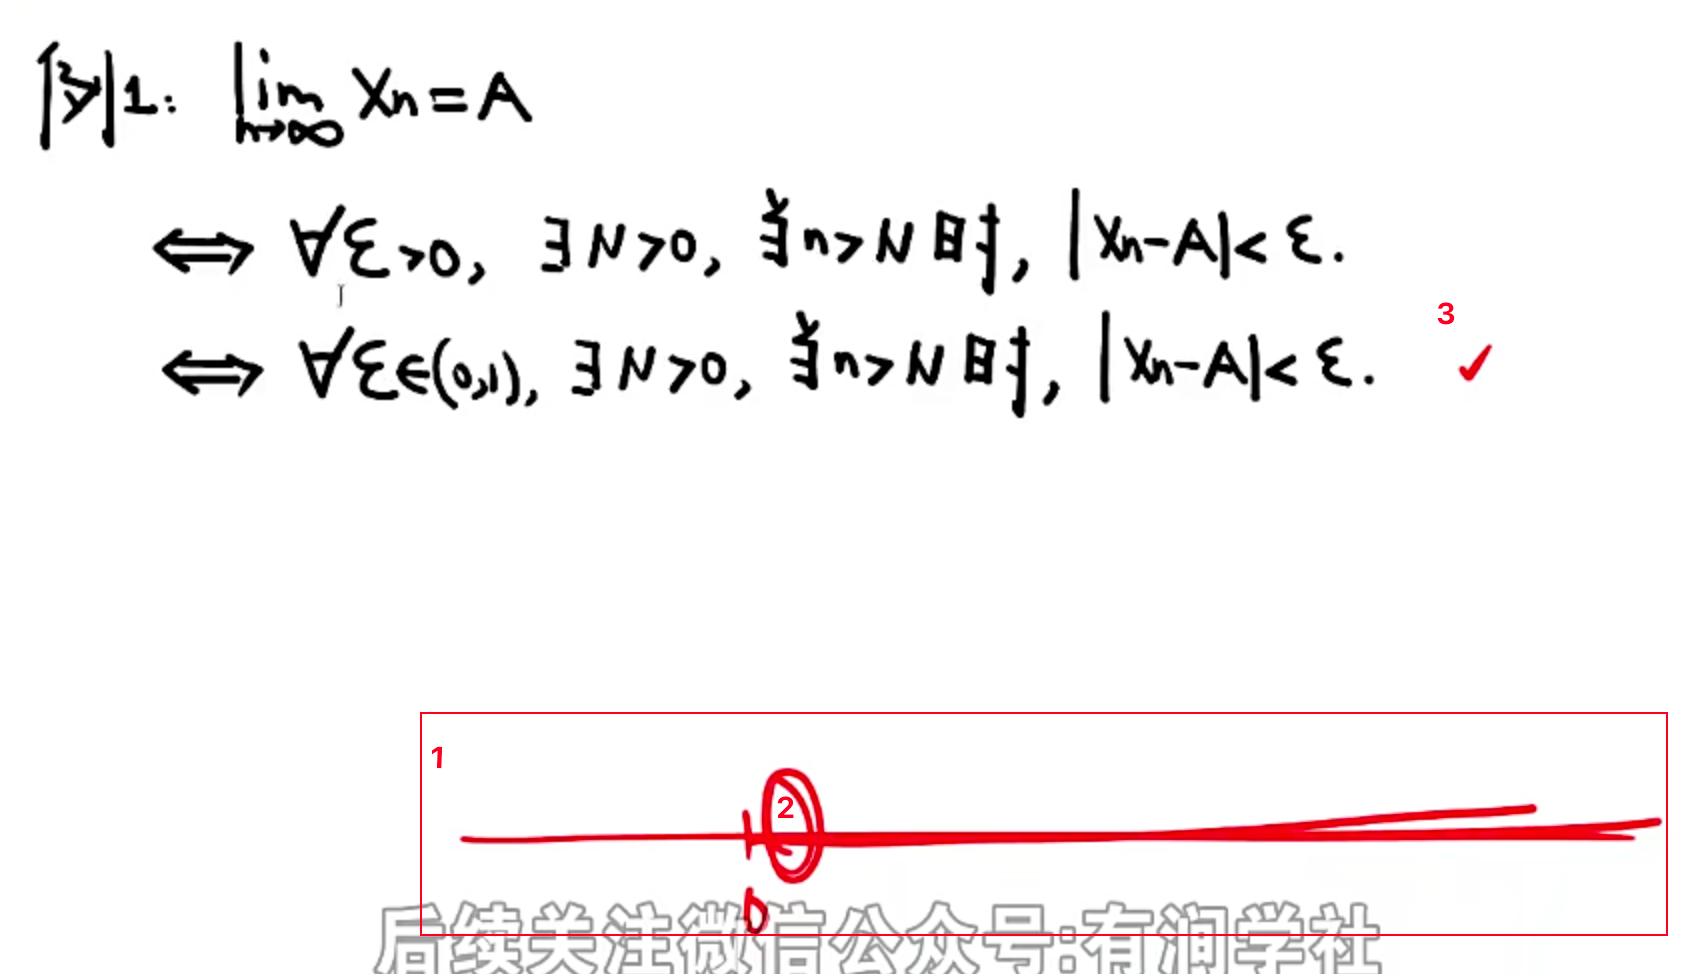 例1: lim n→∞ Xn = A
⟺ ∀ε>0, ∃N>0, 当n>N时, |Xn-A|<ε.
3
⟺ ∀ε∈(0,1), ∃N>0, 当n>N时, |Xn-A|<ε. ✓
1
2
0
后续关注微信公众号:有润学社